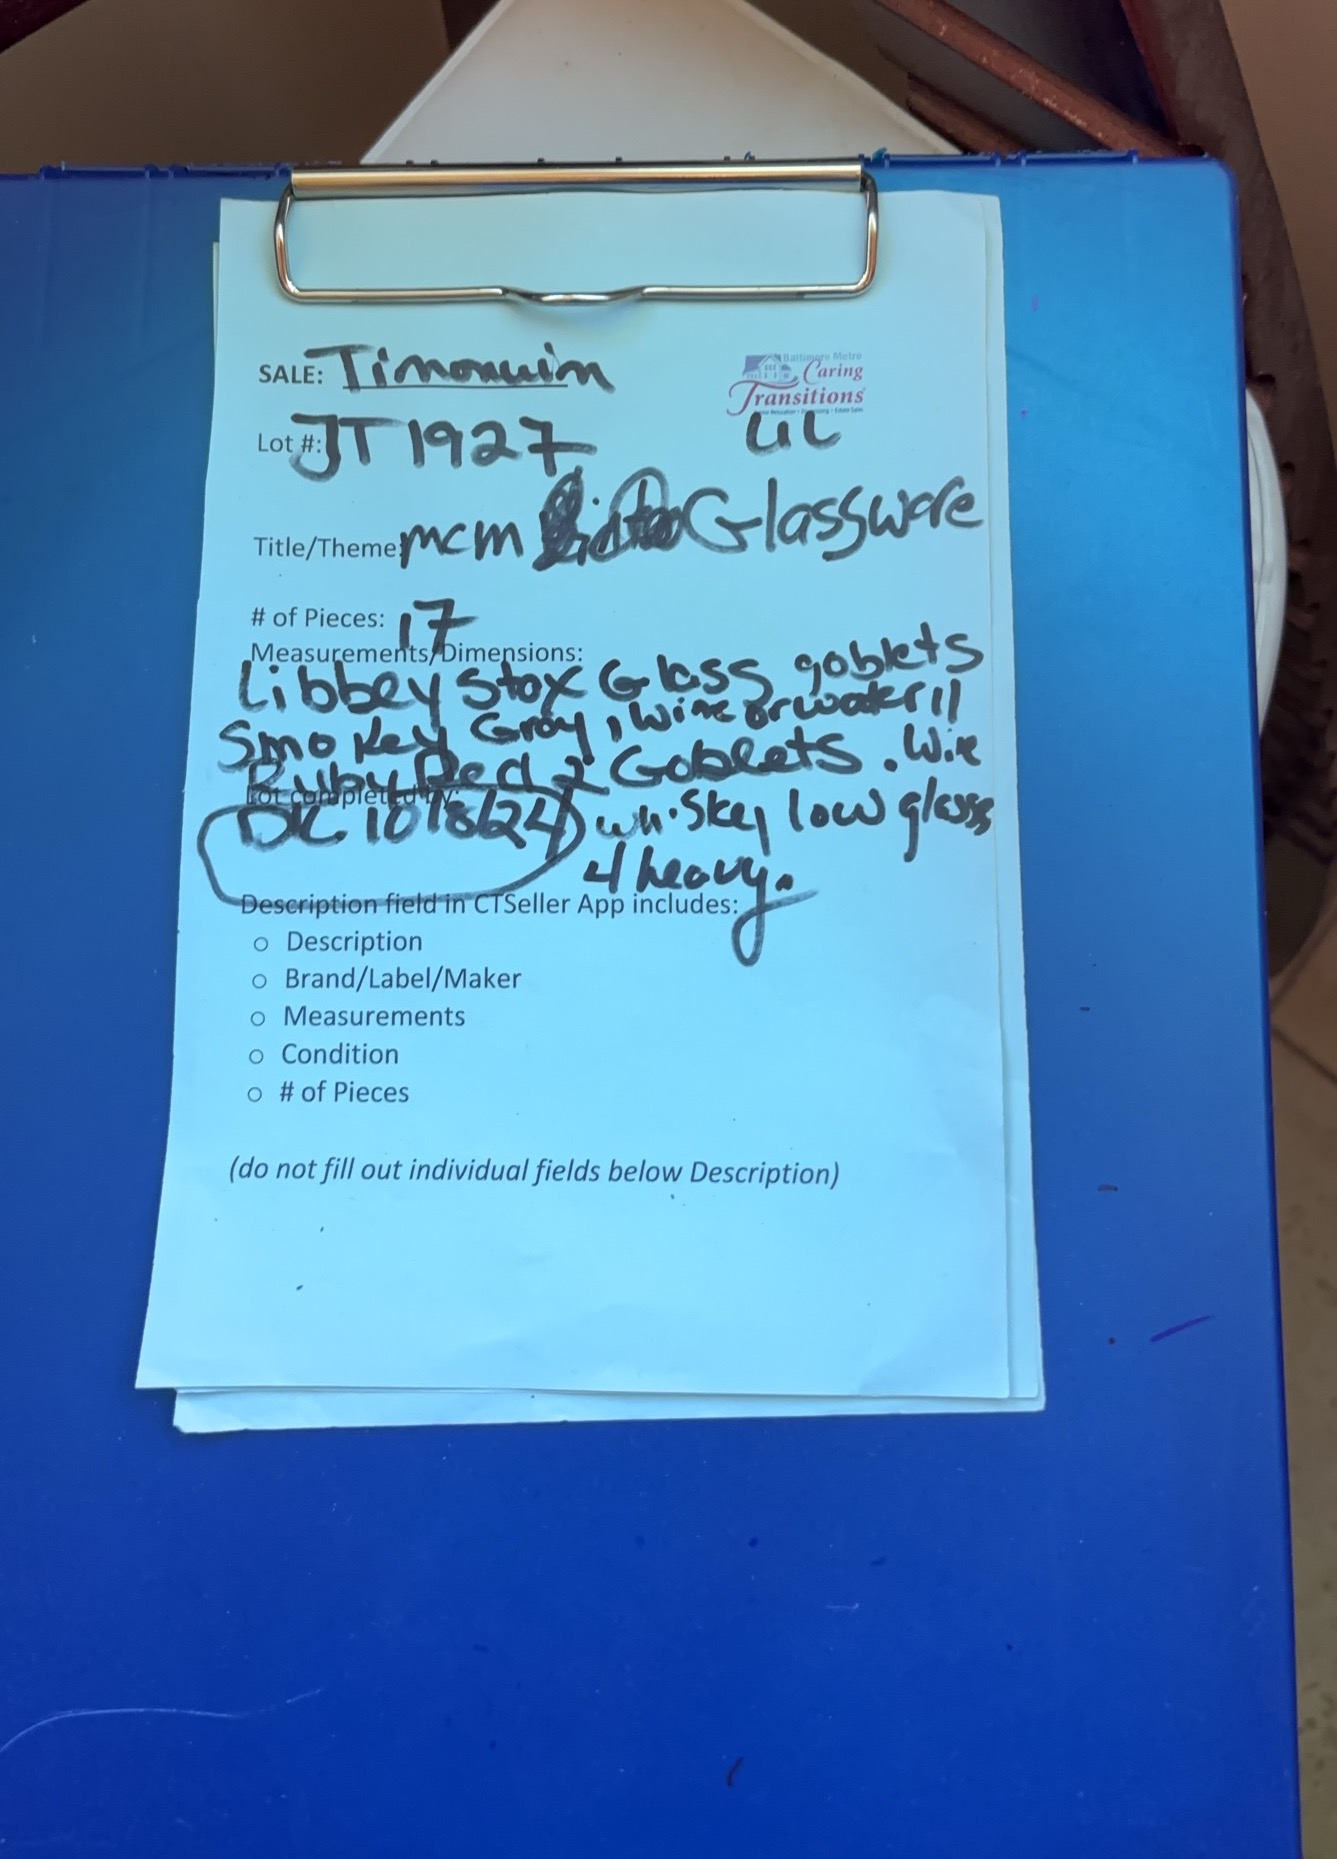 SALE: Timonium
Baltimore Metro
Caring
Transitions
Lot #: JT1927
Title/Theme: mcm Glassware
# of Pieces: 17
Measurements/Dimensions:
Libbey Stox Glass goblets
Smokey Gray, Wine or water 11
Ruby Red 2 Goblets. Wine
Lot completed by:
DK 10/8/24 whiskey low glass
4 heavy.
Description field in CTSeller App includes:
o Description
o Brand/Label/Maker
o Measurements
o Condition
o # of Pieces
(do not fill out individual fields below Description)